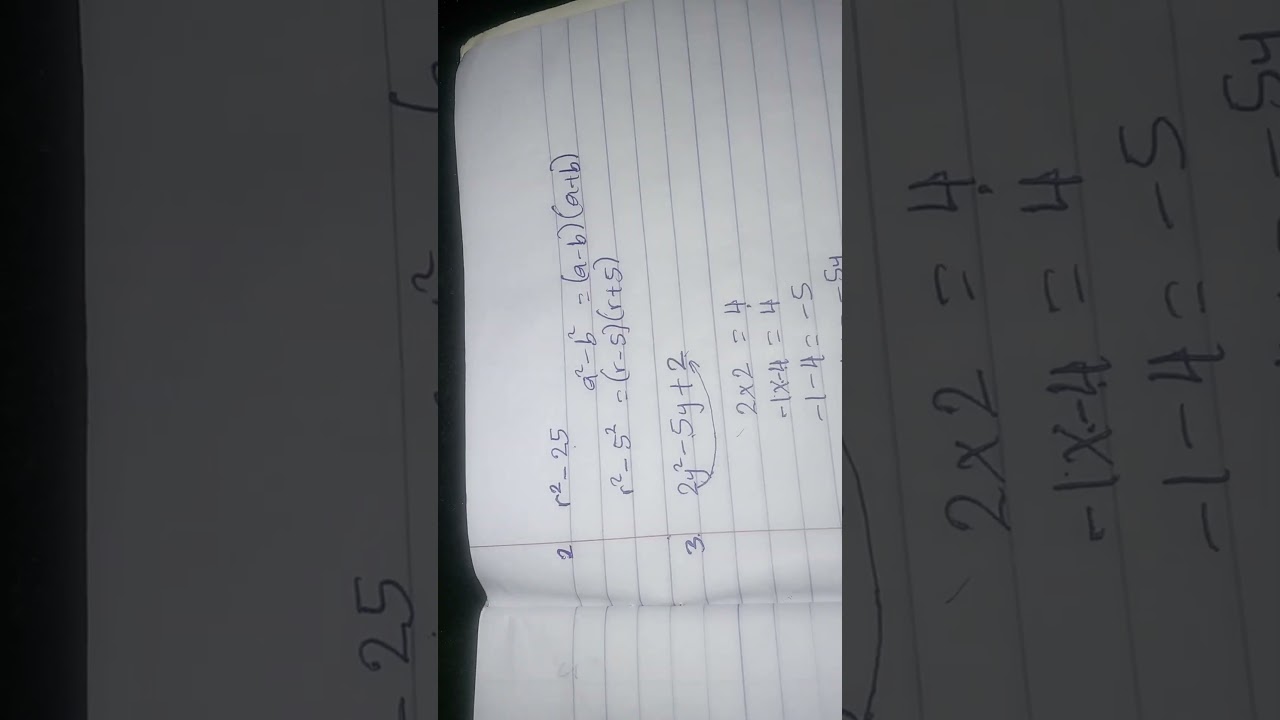 2 r² - 25
a² - b² = (a-b)(a+b)
r² - 5² = (r-5)(r+5)
3. 2y² - 5y + 2
2x2 = 4
-1x-4 = 4
-1-4 = -5